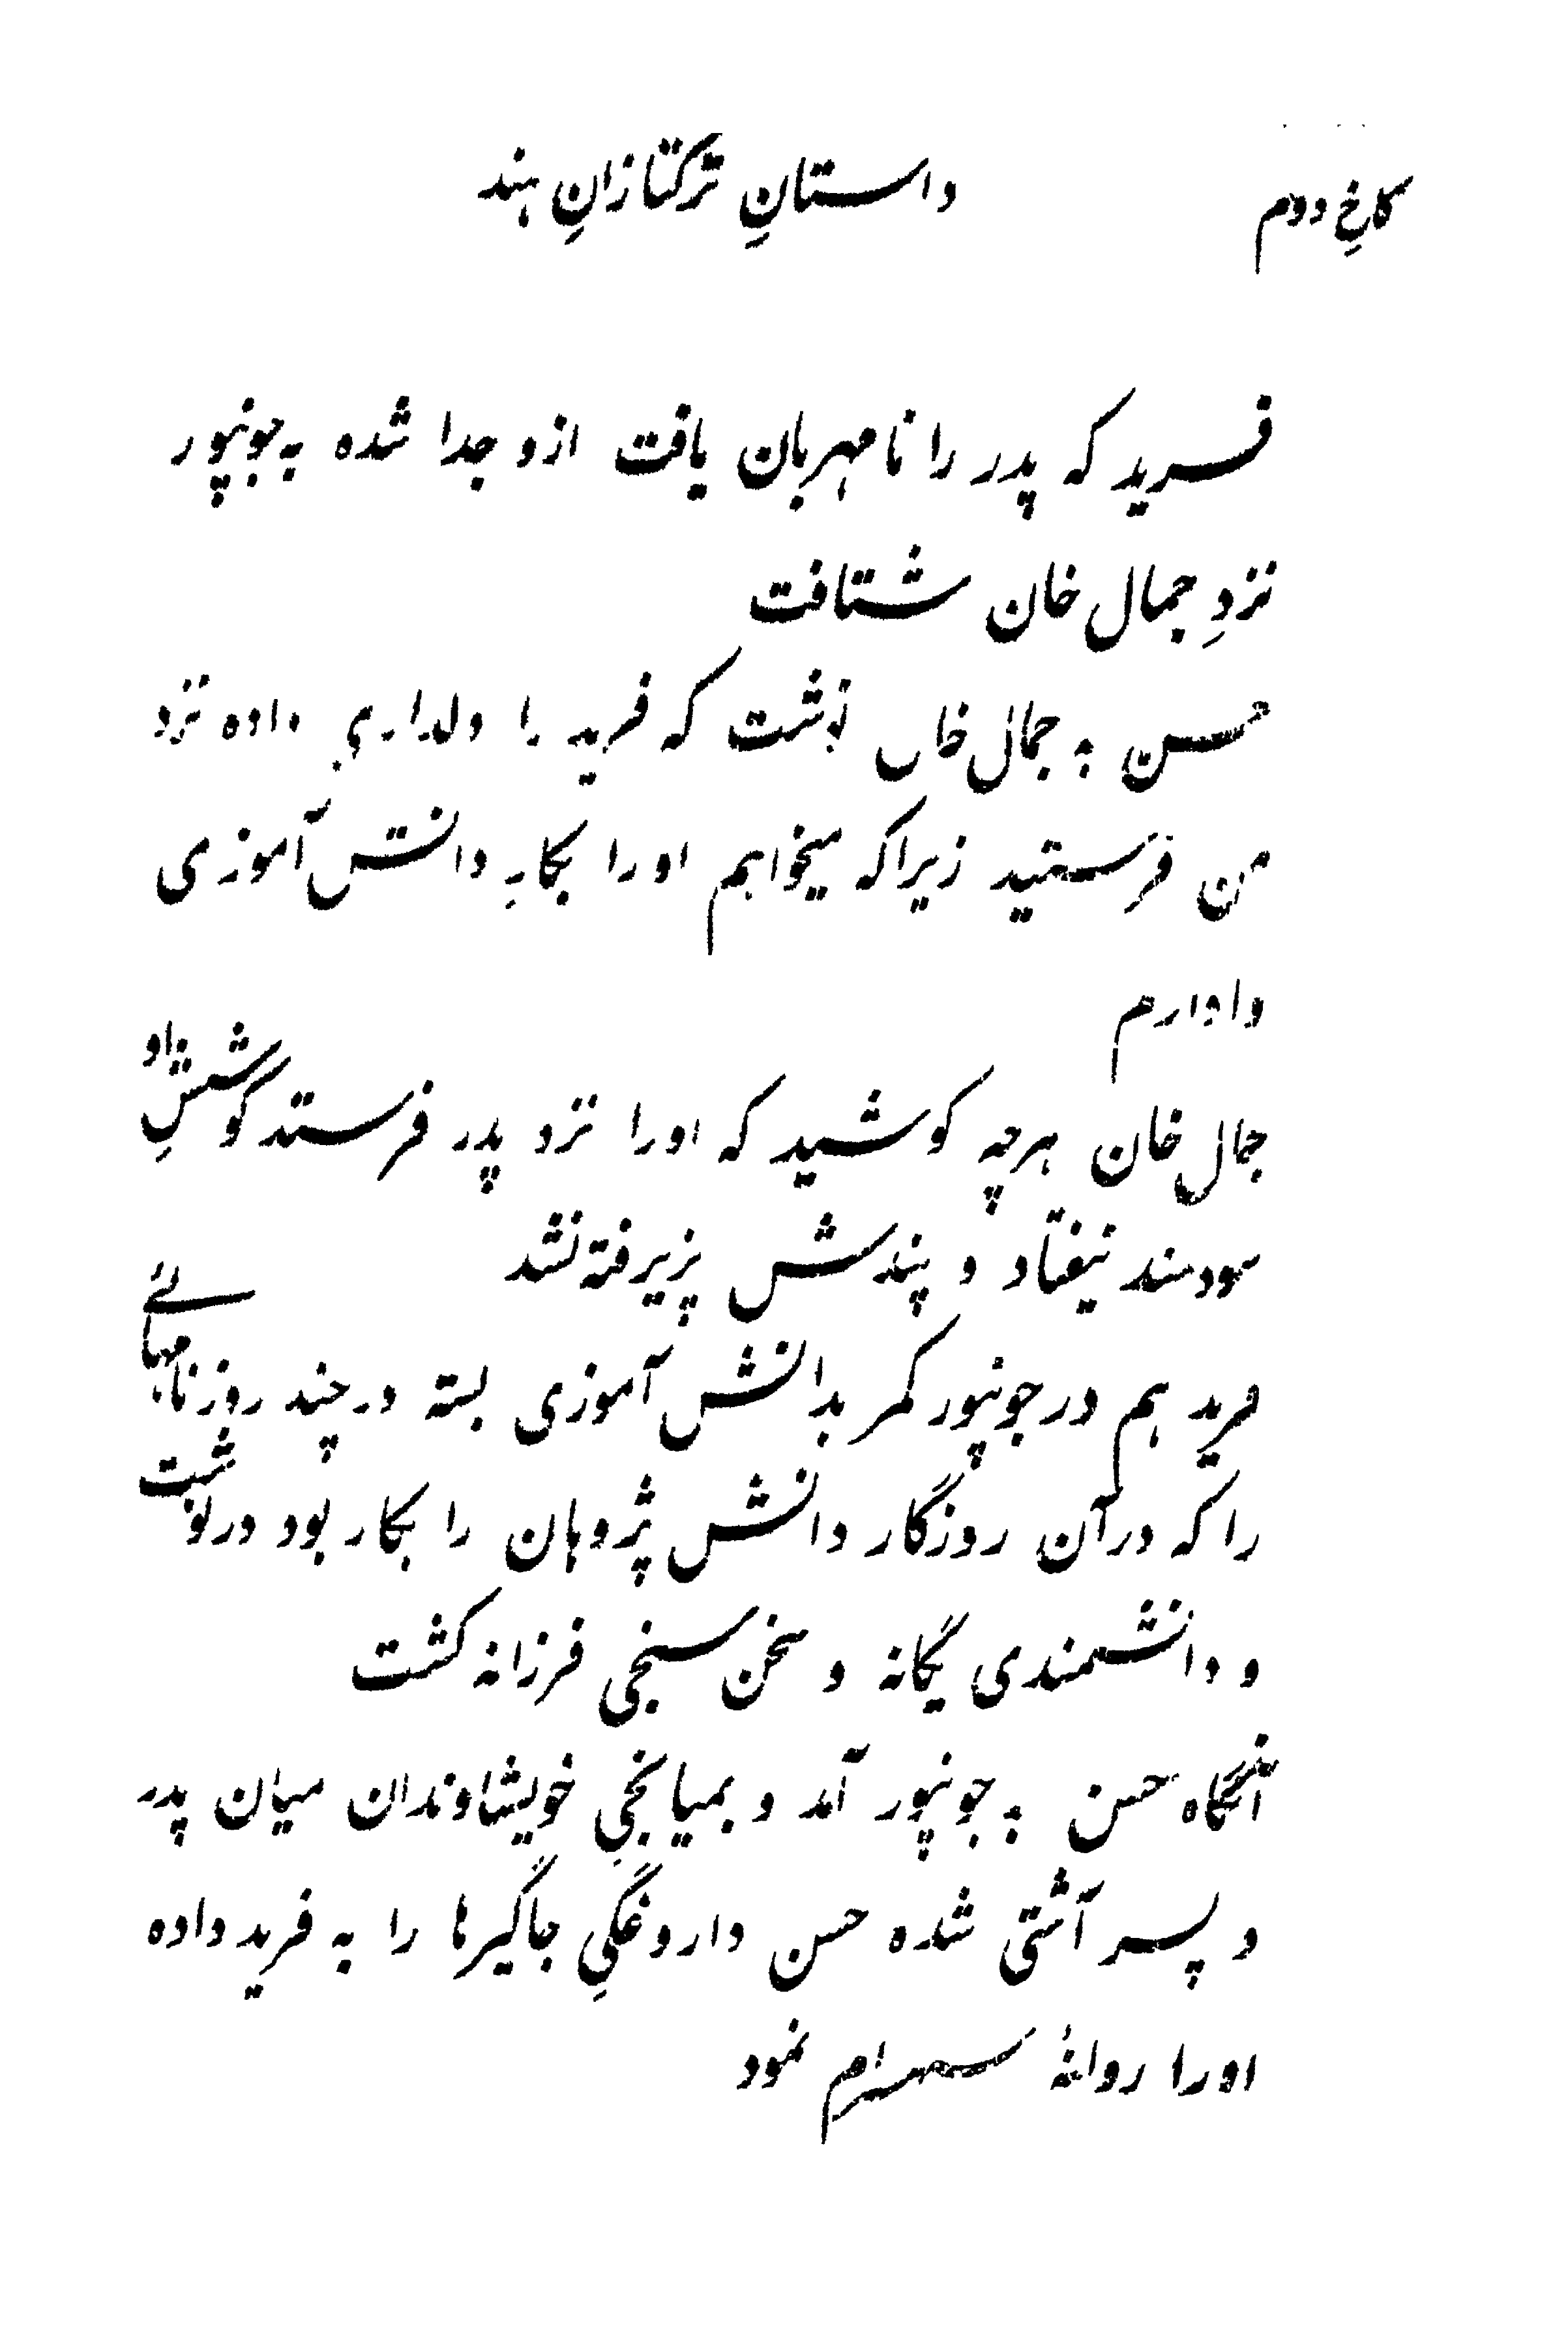 کاخِ دوم
داستانِ ترکتازانِ هند
فرید که پدر را نامهربان یافت ازو جدا شده به جونپور
نزدِ جمال خان شتافت
حسن به جمال خان نوشت که فرید را دلداری داده نزد
من فرستید زیراکه میخواهم اورا بکارِ دانش آموزی
وادارم
جمال خان هرچه کوشید که اورا نزد پدر فرستد کوششِ او
سودمند نیفتاد و پندش پزیرفته نشد
فرید هم در جونپور کمر بدانش آموزی بسته در چند روز نامهائے
را که در آن روزگار دانش پژوهان را بکار بود درنوشت
و دانشمندی یگانه و سخن سنجی فرزانه گشت
آنگاه حسن به جونپور آمد و بمیانجیِ خویشاوندان میان پدر
و پسر آشتی شده حسن داروغگیِ جاگیرها را به فرید داده
اورا روانهٔ سهسرام نمود